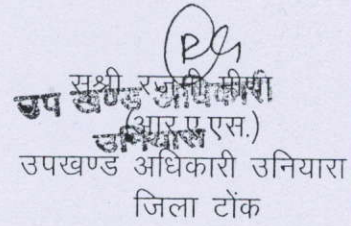 सुश्री रजनी मीणा
उप खण्ड अधिकारी
(आर.ए.एस.)
उनियारा
उपखण्ड अधिकारी उनियारा
जिला टोंक